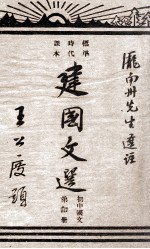 龐南州先生選註
標準
時代
讀本
建國文選
初中國文
第四冊
王公度題